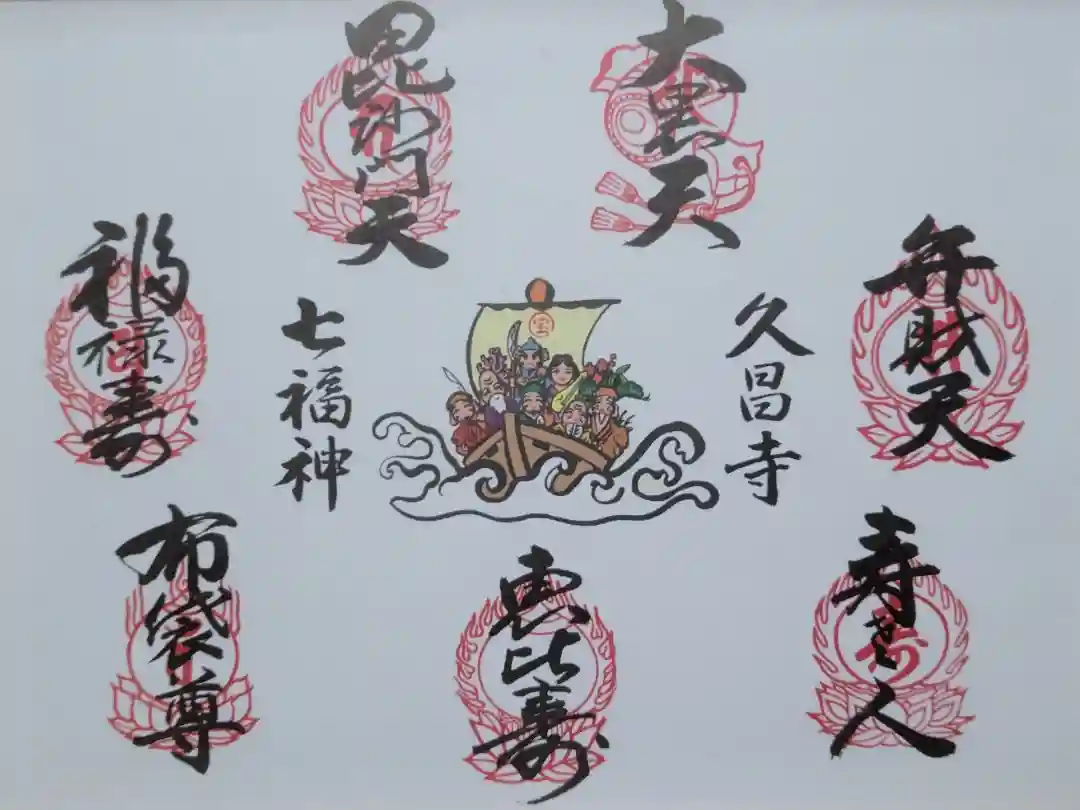 大黒天
毘沙門天
弁財天
久昌寺
七福神
福禄寿
寿老人
恵比寿
布袋尊